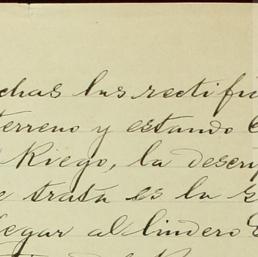 chas las rectifi
terreno y estando
Riego, la descri
e trata es la s
legar al lindero